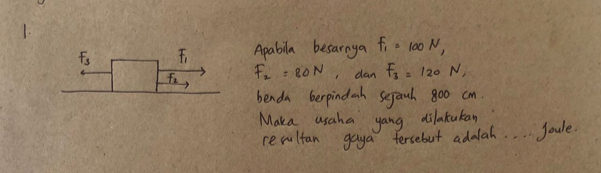 1.
F₃
F₁
F₂
Apabila besarnya F₁ = 100 N,
F₂ = 80 N, dan F₃ = 120 N,
benda berpindah sejauh 800 cm.
Maka usaha yang dilakukan
resultan gaya tersebut adalah .... Joule.